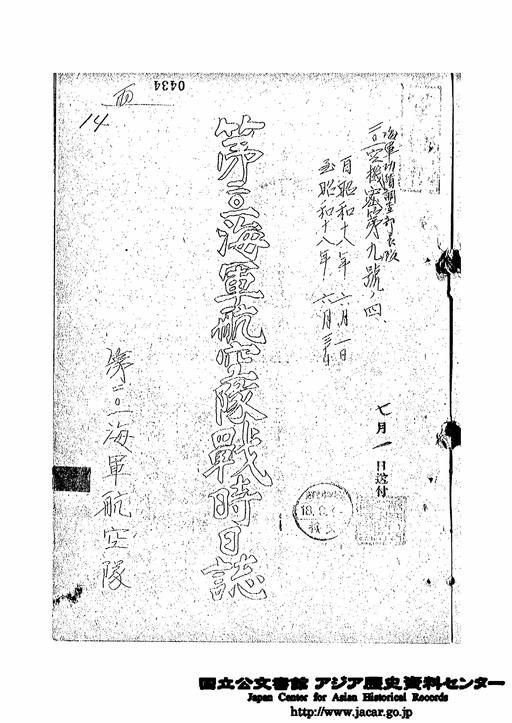 0434
14
海軍功績調査部長殿
二〇一空機密第九號ノ四
自昭和十八年六月一日
至昭和十八年六月三十日
七月一日送付
第二〇一海軍航空隊戰時日誌
第二〇一海軍航空隊
国立公文書館 アジア歴史資料センター
Japan Center for Asian Historical Records
http://www.jacar.go.jp